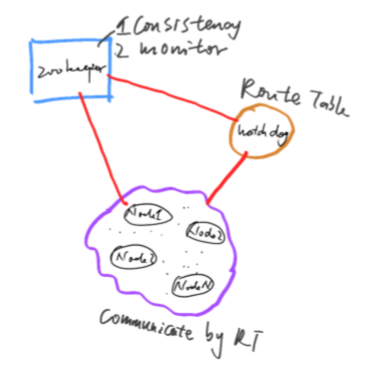 1 Consistency
2 monitor
zookeeper
Route Table
watchdog
Node1
Node2
Node3
NodeN
Communicate by RT